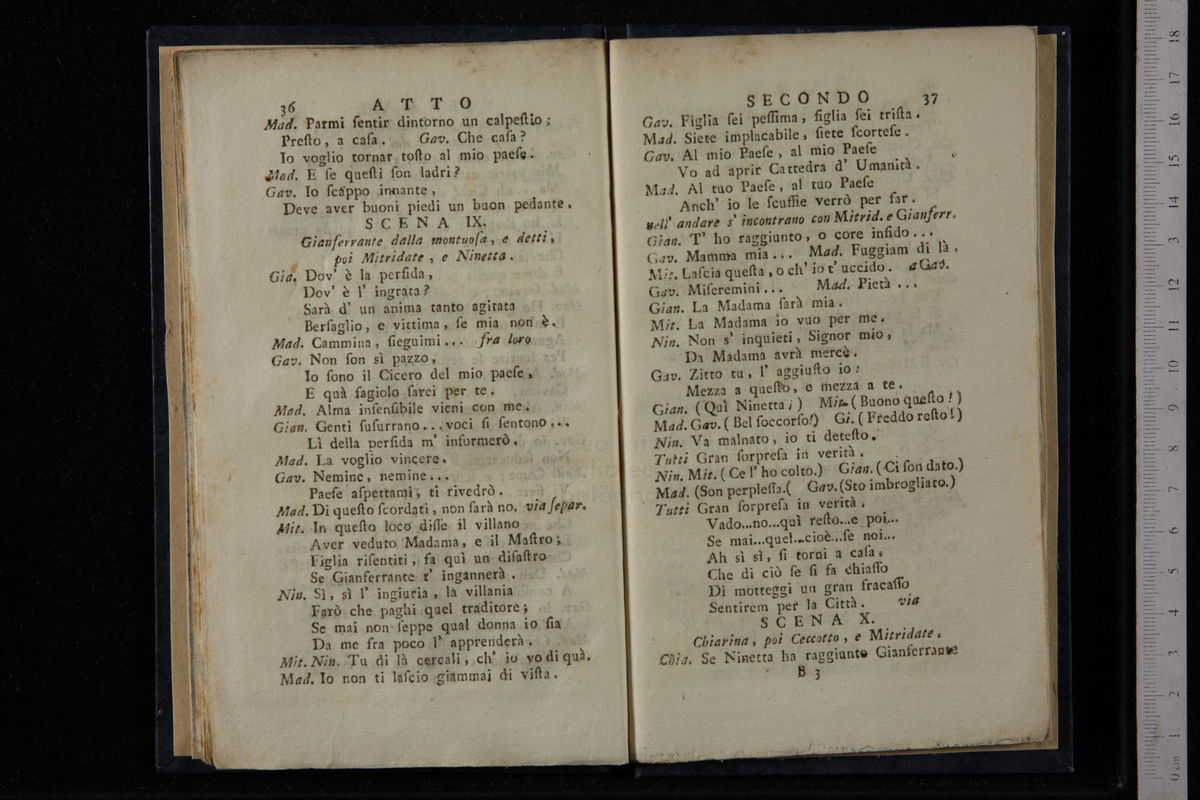 36 ATTO
Mad. Parmi ſentir dintorno un calpeſtio;
Preſto, a caſa. Gav. Che caſa?
Io voglio tornar toſto al mio paeſe.
Mad. E ſe queſti ſon ladri?
Gav. Io ſcappo innante,
Deve aver buoni piedi un buon pedante.
SCENA IX.
Gianferrante dalla montuoſa, e detti,
poi Mitridate, e Ninetta.
Gia. Dov' è la perfida,
Dov' è l' ingrata?
Sarà d' un anima tanto agitata
Berſaglio, e vittima, ſe mia non è.
Mad. Cammina, ſieguimi... fra loro
Gav. Non ſon sì pazzo,
Io ſono il Cicero del mio paeſe,
E quà fagiolo farei per te.
Mad. Alma inſenſibile vieni con me.
Gian. Genti ſuſurrano...voci ſi ſentono...
Lì della perfida m' informerò.
Mad. La voglio vincere.
Gav. Nemine, nemine...
Paeſe aſpettami, ti rivedrò.
Mad. Di queſto ſcordati, non ſarà no. via ſepar.
Mit. In queſto loco diſſe il villano
Aver veduto Madama, e il Maſtro;
Figlia riſentiti, fa quì un diſaſtro
Se Gianferrante t' ingannerà.
Nin. Sì, sì l' ingiuria, la villania
Farò che paghi quel traditore;
Se mai non ſeppe qual donna io ſia
Da me fra poco l' apprenderà.
Mit. Nin. Tu di là cercali, ch' io vo di quà.
Mad. Io non ti laſcio giammai di viſta.
SECONDO 37
Gav. Figlia ſei peſſima, figlia ſei triſta.
Mad. Siete implacabile, ſiete ſcorteſe.
Gav. Al mio Paeſe, al mio Paeſe
Vo ad aprir Cattedra d' Umanità.
Mad. Al tuo Paeſe, al tuo Paeſe
Anch' io le ſcuffie verrò per far.
nell' andare s' incontrano con Mitrid. e Gianferr.
Gian. T' ho raggiunto, o core infido...
Gav. Mamma mia... Mad. Fuggiam di là.
Mit. Laſcia queſta, o ch' io t' uccido. a Gav.
Gav. Miſeremini... Mad. Pietà...
Gian. La Madama ſarà mia.
Mit. La Madama io vuo per me.
Nin. Non s' inquieti, Signor mio,
Da Madama avrà mercè.
Gav. Zitto tu, l' aggiuſto io:
Mezza a queſto, e mezza a te.
Gian. (Quì Ninetta!) Mit. (Buono queſto!)
Mad. Gav. (Bel ſoccorſo!) Gi. (Freddo reſto!)
Nin. Va malnato, io ti deteſto.
Tutti Gran ſorpreſa in verità.
Nin. Mit. (Ce l' ho colto.) Gian. (Ci ſon dato.)
Mad. (Son perpleſſa.( Gav. (Sto imbrogliato.)
Tutti Gran ſorpreſa in verità.
Vado...no...quì reſto...e poi...
Se mai...quel...cioè...ſe noi...
Ah sì sì, ſi torni a caſa,
Che di ciò ſe ſi fa chiaſſo
Di motteggi un gran fracaſſo
Sentirem per la Città. via
SCENA X.
Chiarina, poi Ceccotto, e Mitridate.
Chia. Se Ninetta ha raggiunto Gianferrante
B 3